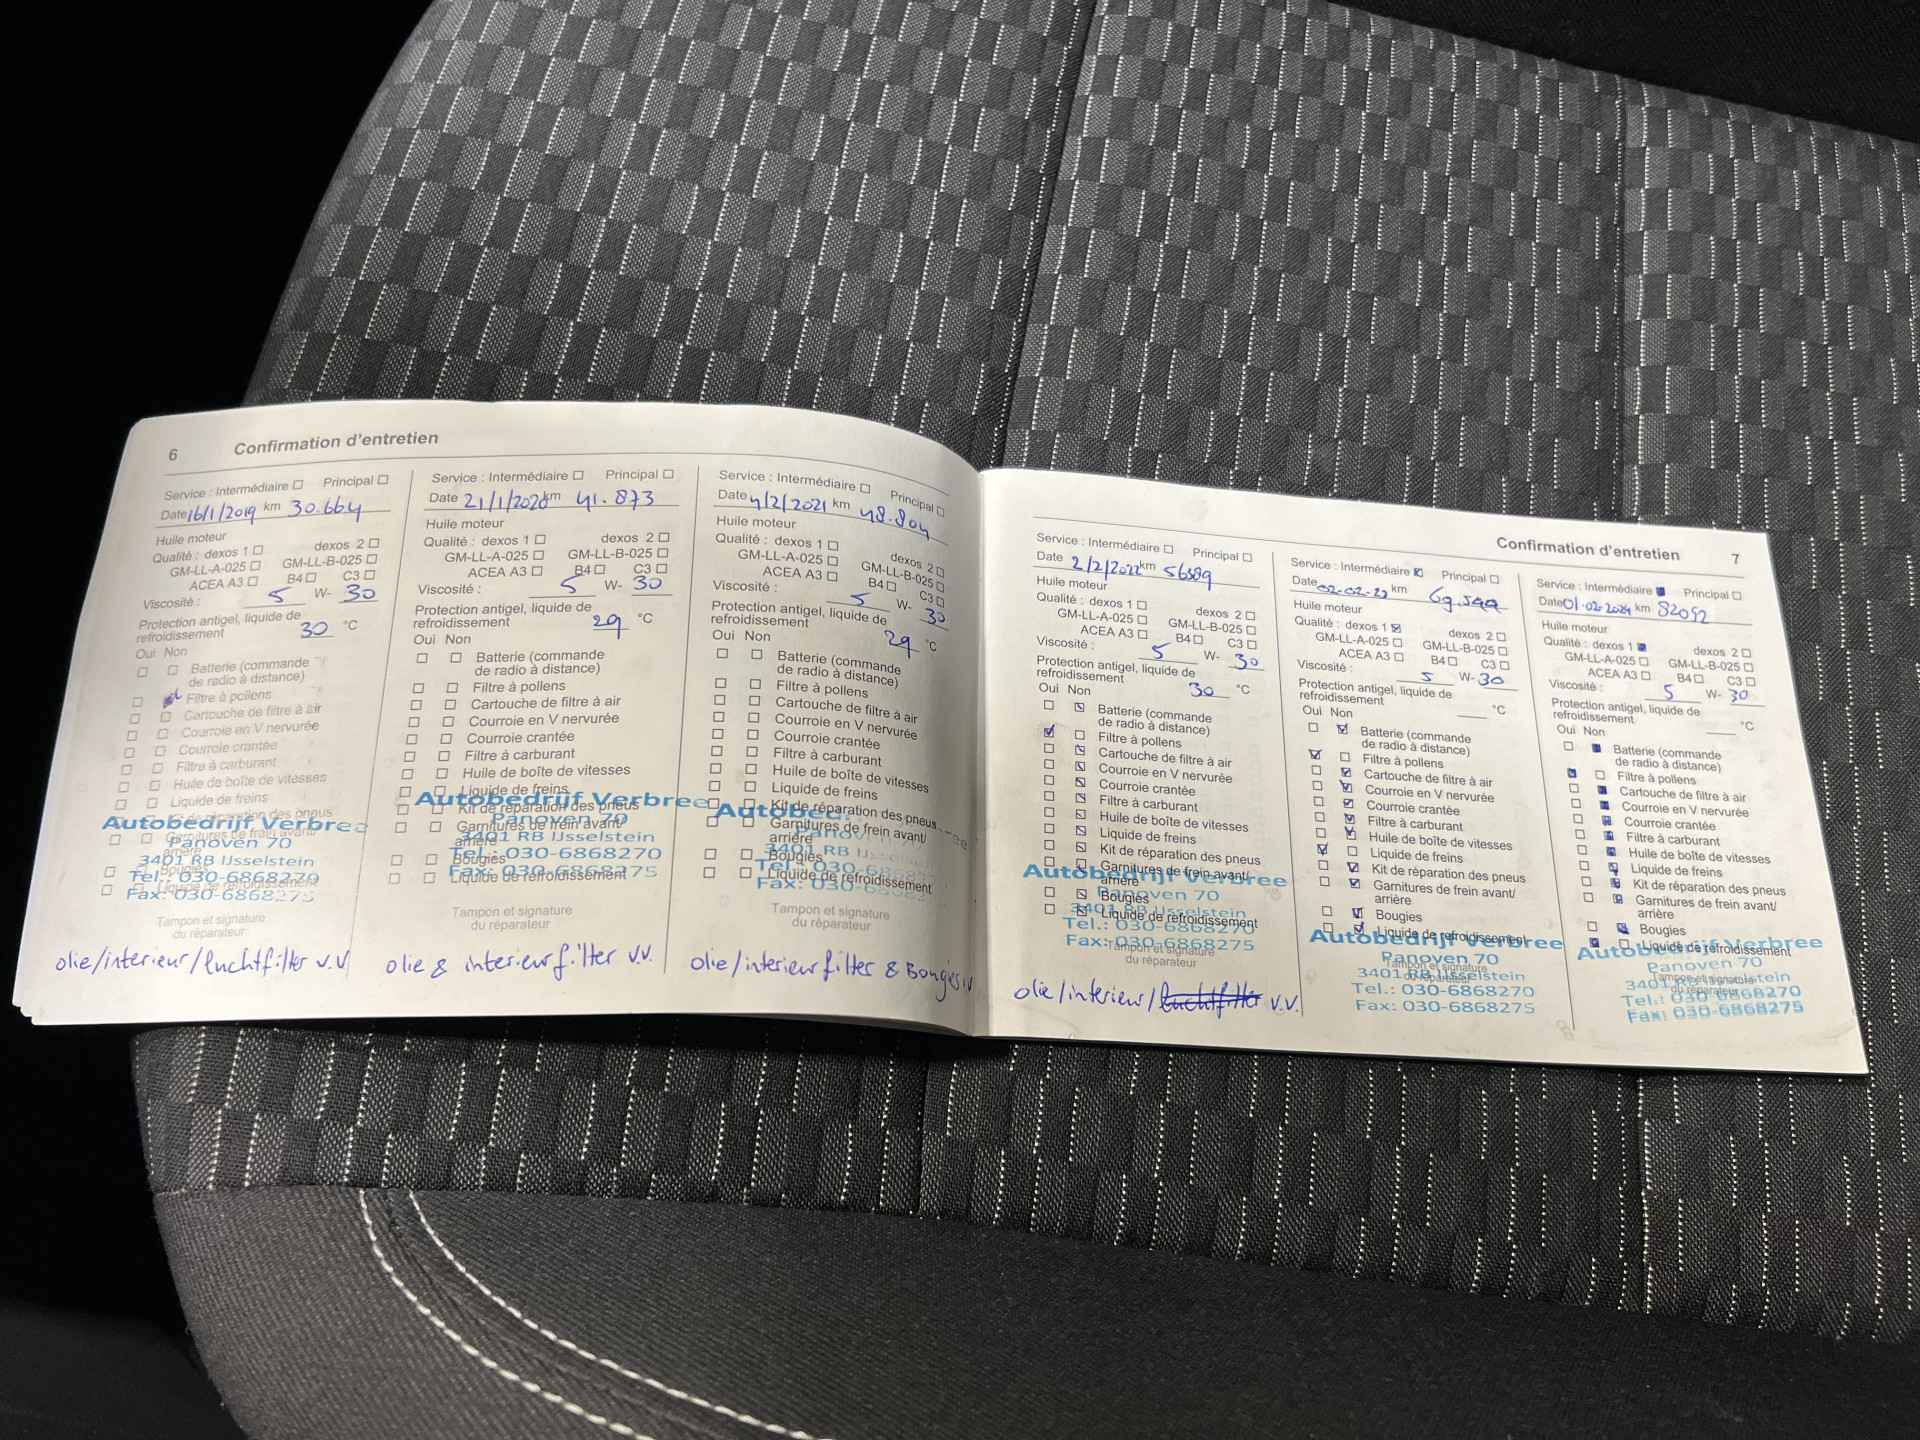 6 Confirmation d'entretien
Service : Intermédiaire ☐ Principal ☐
Date 16/1/2019 km 30.664
Huile moteur
Qualité : dexos 1 ☐ dexos 2 ☐
GM-LL-A-025 ☐ GM-LL-B-025 ☐
ACEA A3 ☐ B4 ☐ C3 ☐
Viscosité : 5 W- 30
Protection antigel, liquide de
refroidissement 30 °C
Oui Non
Batterie (commande
de radio à distance)
Filtre à pollens
Cartouche de filtre à air
Courroie en V nervurée
Courroie crantée
Filtre à carburant
Huile de boîte de vitesses
Liquide de freins
Autobedrijf Verbree
Panoven 70
3401 RB IJsselstein
Tel.: 030-6868270
Fax: 030-6868275
Tampon et signature
du réparateur
olie/interieur/luchtfilter v.v
Service : Intermédiaire ☐ Principal ☐
Date 21/1/2020 km 41.873
Huile moteur
Qualité : dexos 1 ☐ dexos 2 ☐
GM-LL-A-025 ☐ GM-LL-B-025 ☐
ACEA A3 ☐ B4 ☐ C3 ☐
Viscosité : 5 W- 30
Protection antigel, liquide de
refroidissement 29 °C
Oui Non
Batterie (commande
de radio à distance)
Filtre à pollens
Cartouche de filtre à air
Courroie en V nervurée
Courroie crantée
Filtre à carburant
Huile de boîte de vitesses
Liquide de freins
Kit de réparation des pneus
Garnitures de frein avant/
arrière
Bougies
Liquide de refroidissement
Autobedrijf Verbree
Panoven 70
3401 RB IJsselstein
Tel.: 030-6868270
Fax: 030-6868275
Tampon et signature
du réparateur
olie & interieurfilter v.v.
Service : Intermédiaire ☐ Principal ☐
Date 4/2/2021 km 48.804
Huile moteur
Qualité : dexos 1 ☐ dexos 2 ☐
GM-LL-A-025 ☐ GM-LL-B-025 ☐
ACEA A3 ☐ B4 ☐ C3 ☐
Viscosité : 5 W- 30
Protection antigel, liquide de
refroidissement 29 °C
Oui Non
Batterie (commande
de radio à distance)
Filtre à pollens
Cartouche de filtre à air
Courroie en V nervurée
Courroie crantée
Filtre à carburant
Huile de boîte de vitesses
Liquide de freins
Kit de réparation des pneus
Garnitures de frein avant/
arrière
Bougies
Liquide de refroidissement
Tampon et signature
du réparateur
olie/interieurfilter & Bougies
Confirmation d'entretien 7
Service : Intermédiaire ☐ Principal ☐
Date 2/2/2022 km 56589
Huile moteur
Qualité : dexos 1 ☐ dexos 2 ☐
GM-LL-A-025 ☐ GM-LL-B-025 ☐
ACEA A3 ☐ B4 ☐ C3 ☐
Viscosité : 5 W- 30
Protection antigel, liquide de
refroidissement 30 °C
Oui Non
Batterie (commande
de radio à distance)
Filtre à pollens
Cartouche de filtre à air
Courroie en V nervurée
Courroie crantée
Filtre à carburant
Huile de boîte de vitesses
Liquide de freins
Kit de réparation des pneus
Garnitures de frein avant/
arrière
Bougies
Liquide de refroidissement
Autobedrijf Verbree
Panoven 70
3401 RB IJsselstein
Tel.: 030-6868270
Fax: 030-6868275
Tampon et signature
du réparateur
olie/interieur/luchtfilter v.v.
Service : Intermédiaire ☑ Principal ☐
Date 02-02-23 km
Huile moteur
Qualité : dexos 1 ☑ dexos 2 ☐
GM-LL-A-025 ☐ GM-LL-B-025 ☐
ACEA A3 ☐ B4 ☐ C3 ☐
Viscosité : 5 W- 30
Protection antigel, liquide de
refroidissement °C
Oui Non
Batterie (commande
de radio à distance)
Filtre à pollens
Cartouche de filtre à air
Courroie en V nervurée
Courroie crantée
Filtre à carburant
Huile de boîte de vitesses
Liquide de freins
Kit de réparation des pneus
Garnitures de frein avant/
arrière
Bougies
Liquide de refroidissement
Autobedrijf Verbree
Panoven 70
3401 RB IJsselstein
Tel.: 030-6868270
Fax: 030-6868275
Tampon et signature
Service : Intermédiaire ☑ Principal ☐
Date 01-02-2024 km 82092
Huile moteur
Qualité : dexos 1 ☑ dexos 2 ☐
GM-LL-A-025 ☐ GM-LL-B-025 ☐
ACEA A3 ☐ B4 ☐ C3 ☐
Viscosité : 5 W- 30
Protection antigel, liquide de
refroidissement °C
Oui Non
Batterie (commande
de radio à distance)
Filtre à pollens
Cartouche de filtre à air
Courroie en V nervurée
Courroie crantée
Filtre à carburant
Huile de boîte de vitesses
Liquide de freins
Kit de réparation des pneus
Garnitures de frein avant/
arrière
Bougies
Liquide de refroidissement
Autobedrijf Verbree
Panoven 70
3401 RB IJsselstein
Tel.: 030-6868270
Fax: 030-6868275
Tampon et signature
du réparateur